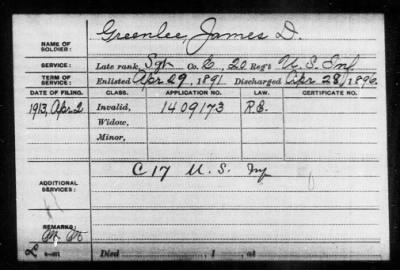 NAME OF SOLDIER: Greenlee, James D.
SERVICE: Late rank, Sgt Co. E, 20 Reg't U.S. Inf
TERM OF SERVICE: Enlisted Apr 29, 1891 Discharged Apr 28, 1896.
DATE OF FILING. CLASS. APPLICATION NO. LAW. CERTIFICATE NO.
1913, Apr 2 Invalid, 1409173 R.E.
Widow,
Minor,
ADDITIONAL SERVICES: C 17 U.S. Inf
REMARKS:
Died , 1 , at